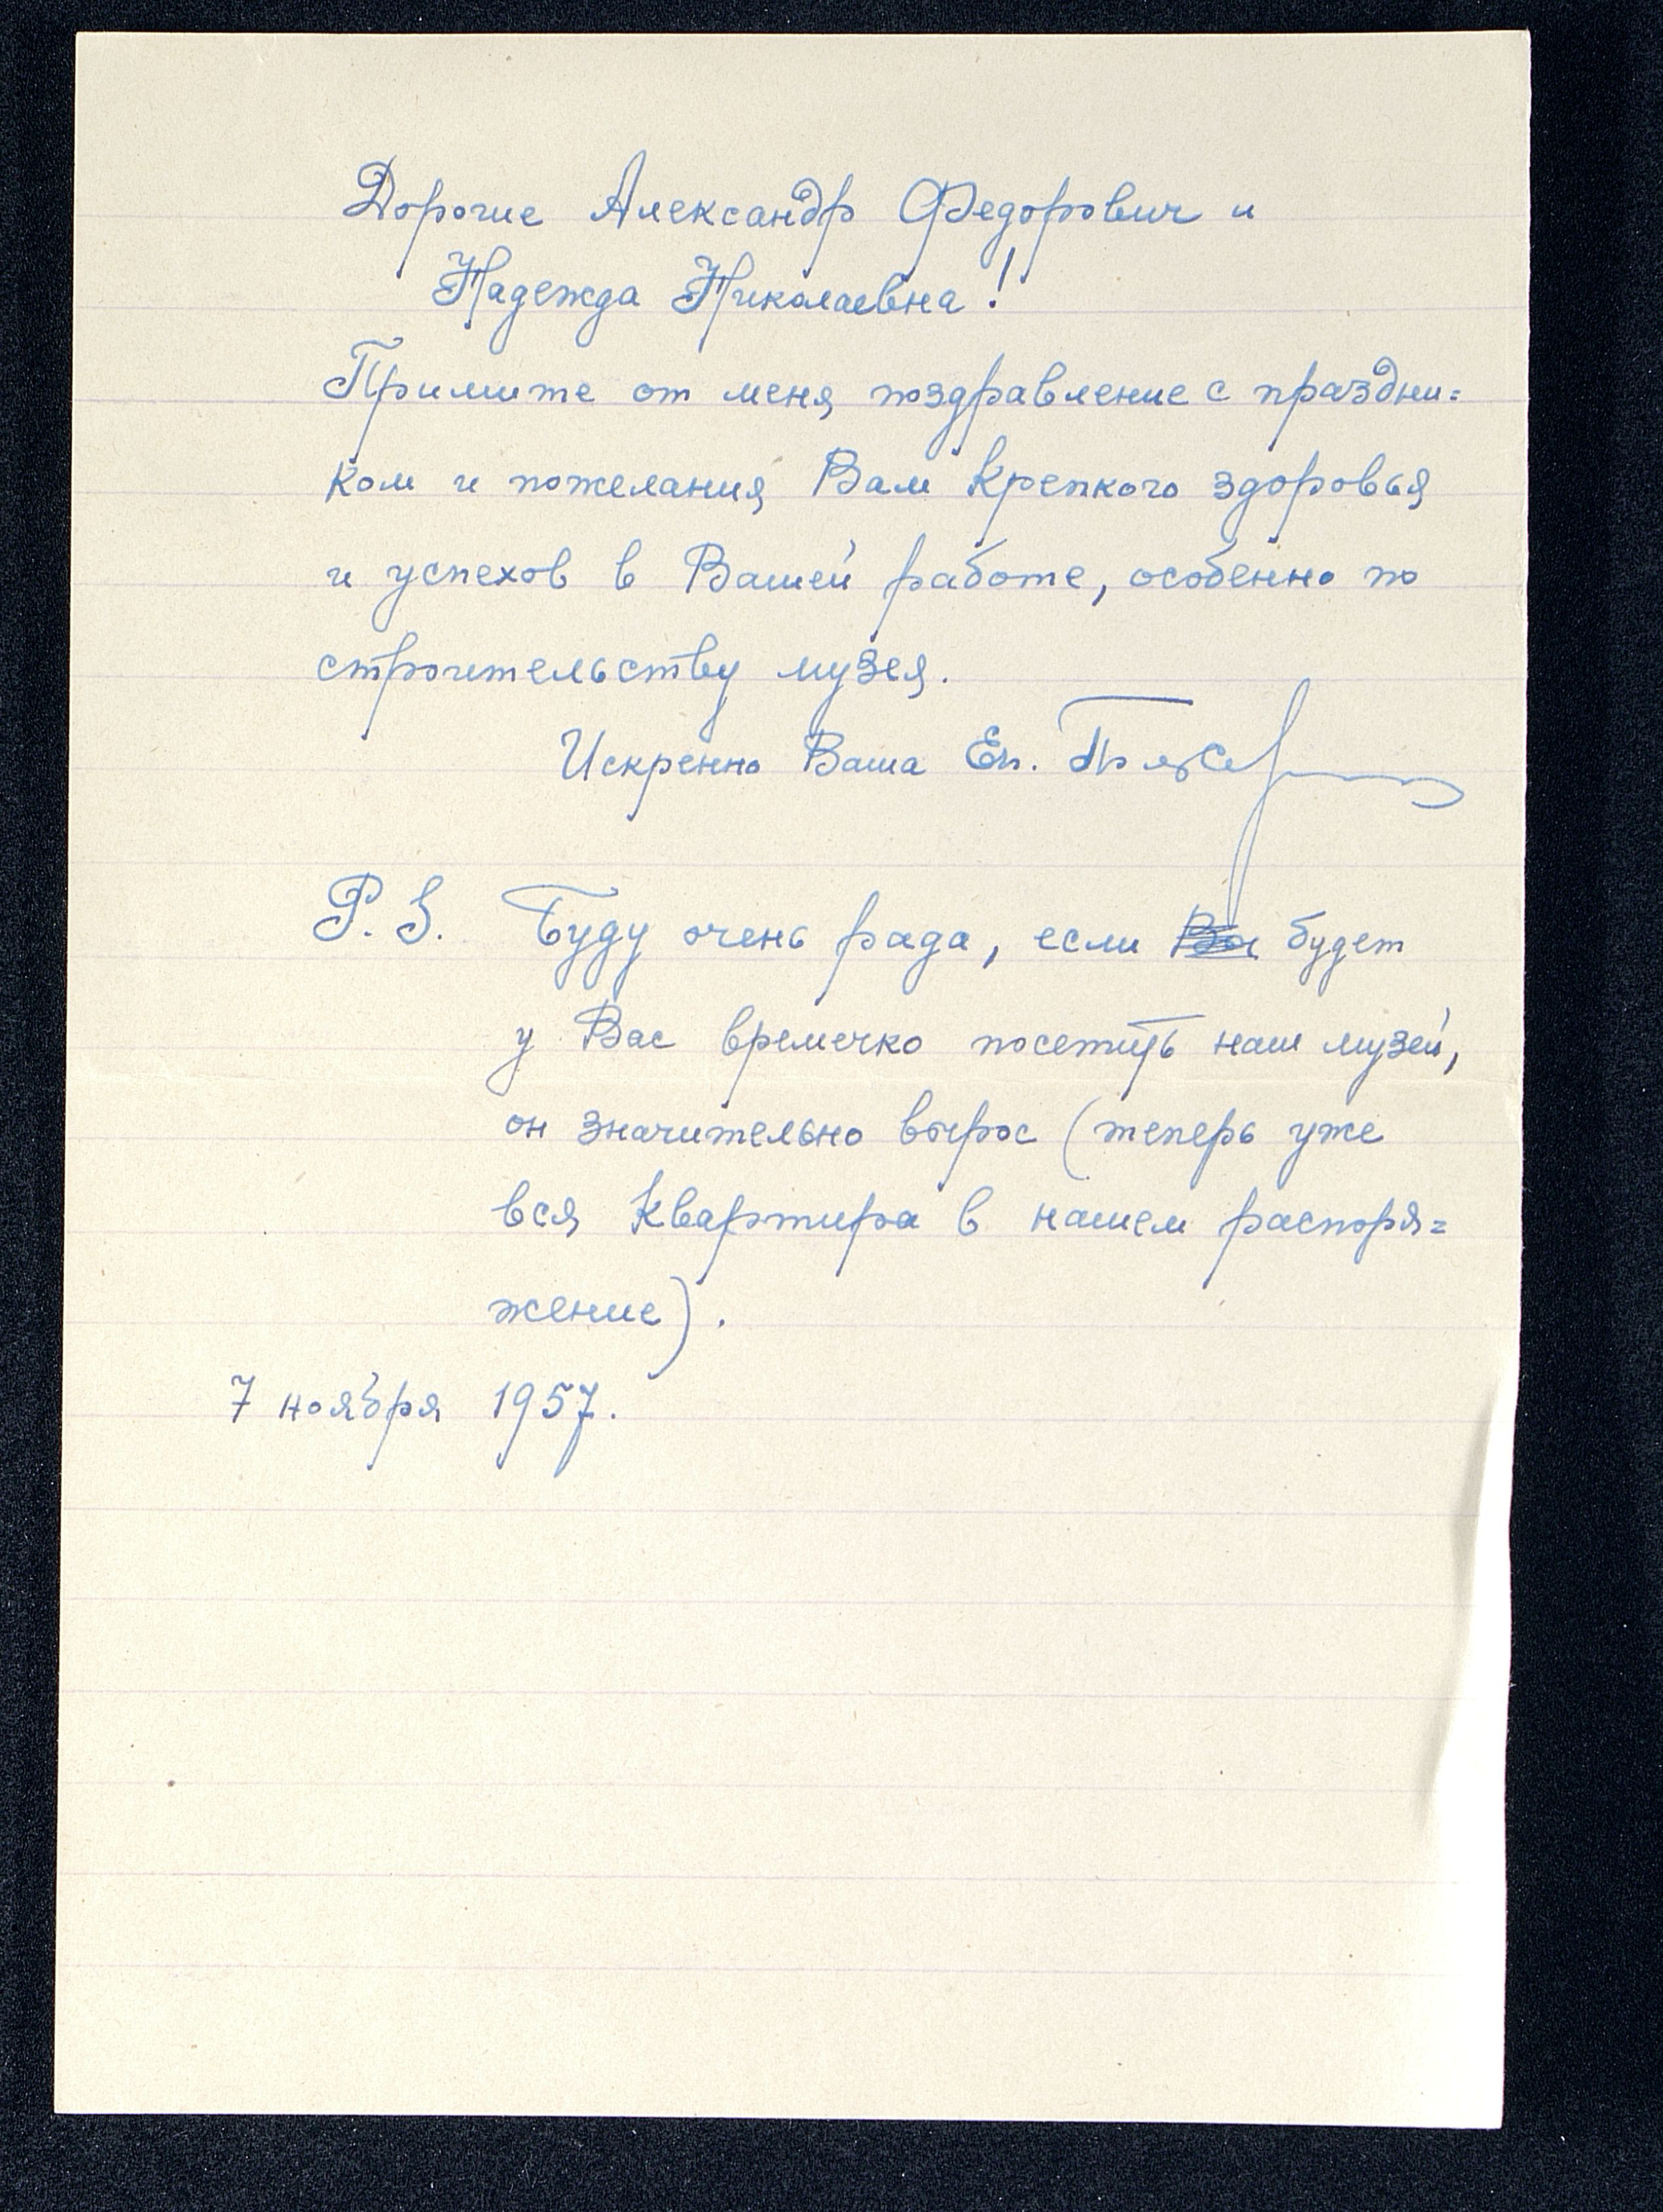 Дорогие Александр Федорович и
Надежда Николаевна!
Примите от меня поздравление с праздни=
ком и пожелания Вам крепкого здоровья
и успехов в Вашей работе, особенно по
строительству музея.
Искренно Ваша Ел.
P.S. Буду очень рада, если будет
у Вас времечко посетить наш музей,
он значительно вырос (теперь уже
вся квартира в нашем распоря=
жение).
7 ноября 1957.